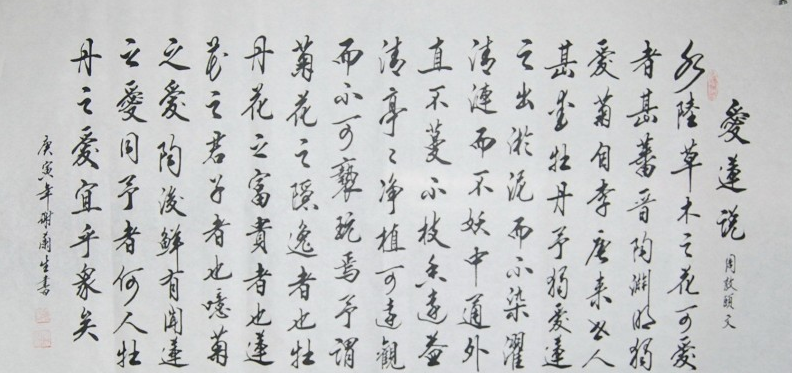 愛蓮说 周敦頤文
水陸草木之花可愛
者甚蕃晋陶渊明獨
爱菊自李唐来世人
甚爱牡丹予獨爱蓮
之出淤泥而不染濯
清漣而不妖中通外
直不蔓不枝香遠益
清亭々净植可遠觀
而不可褻玩焉予謂
菊花之隱逸者也牡
丹花之富貴者也蓮
花之君子者也噫菊
之爱陶後鮮有闻蓮
之愛同予者何人牡
丹之爱宜乎衆矣
庚寅年谢生書